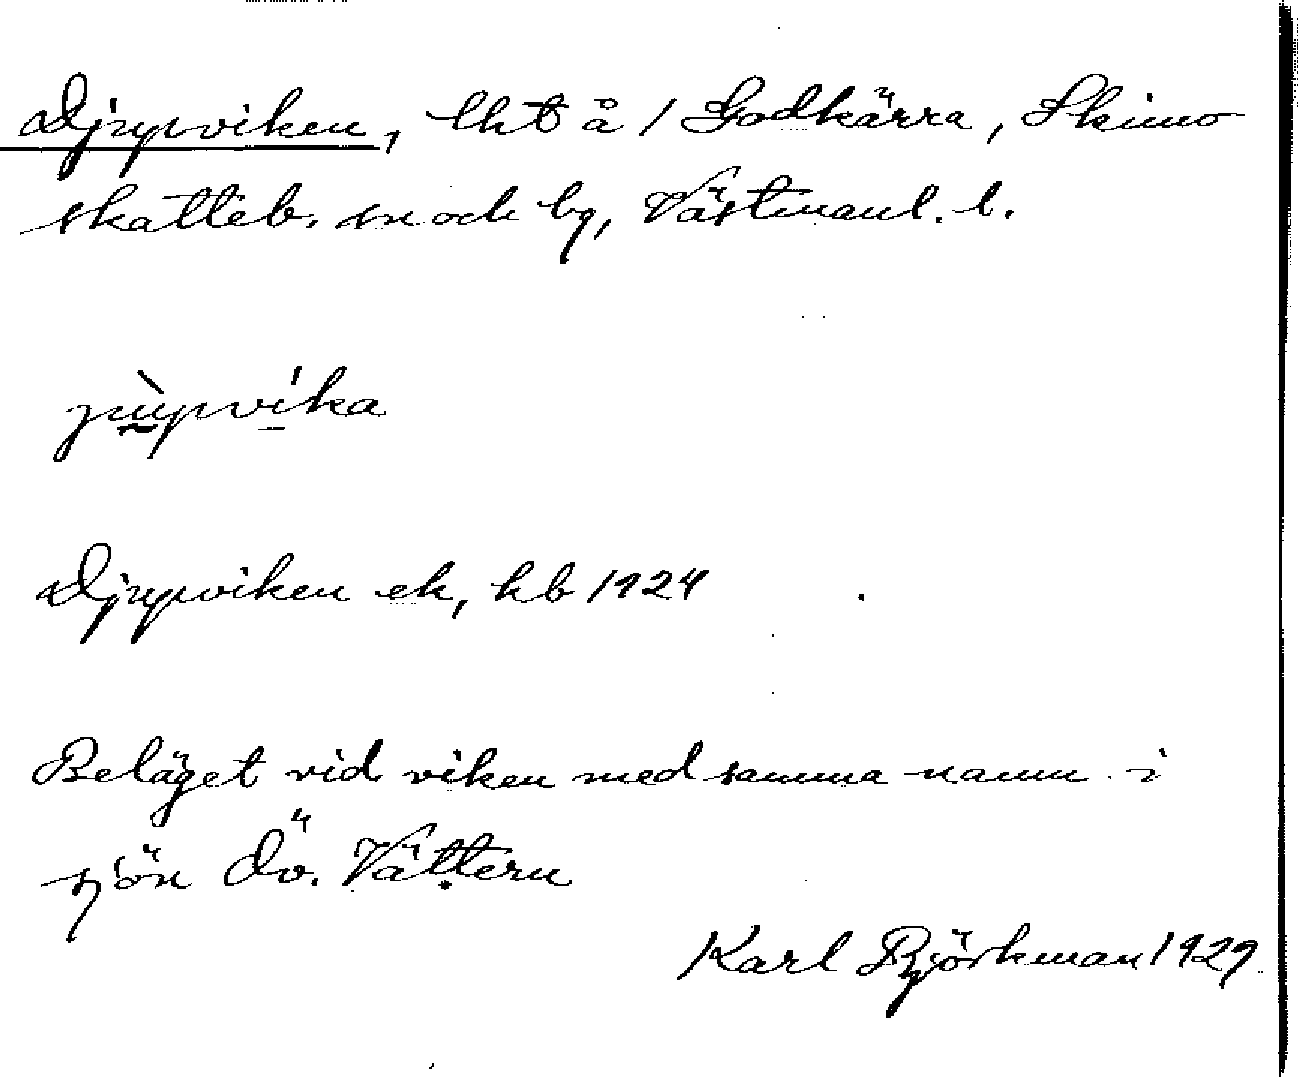 Djupviken, lht å 1 Godkärra, Skinno
skatteb. sn och bg, Västmanl. l.
jùpvíka
Djupviken ek, hb 1924
Beläget vid viken med samma namn i
sjön Öv. Vättern
Karl Björkman 1929